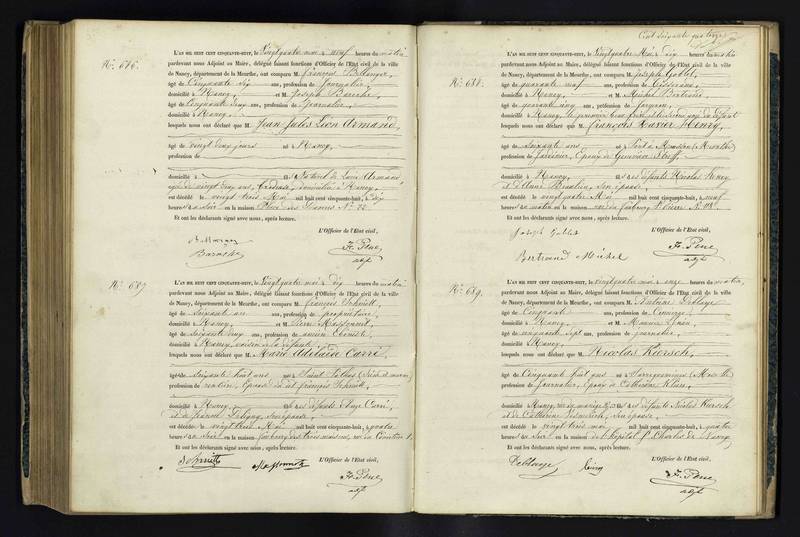 N°. 686.
L'AN MIL HUIT CENT CINQUANTE-HUIT, le Vingtquatre mai à neuf heures du matin
pardevant nous Adjoint au Maire, délégué faisant fonctions d'Officier de l'État civil de la ville
de Nancy, département de la Meurthe, ont comparu M. François
âgé de Cinquante six ans, profession de Journalier,
domicilié à Nancy, et M. Joseph Baroche
âgé de Cinquante deux ans, profession de Journalier,
domicilié à Nancy,
lesquels nous ont déclaré que M. Jean Jules Léon Armand,
âgé de vingt deux jours né à Nancy,
profession de
domicilié à fils naturel de Armand
âgée de vingt deux ans, Brodeuse, domiciliée à Nancy,
est décédé le vingt trois Mai mil huit cent cinquante-huit, à dix
heures du soir en la maison Place des N° 22.
Et ont les déclarants signé avec nous, après lecture.
L'Officier de l'État civil,
Baroche
adjt
N°. 687.
L'AN MIL HUIT CENT CINQUANTE-HUIT, le Vingtquatre mai à dix heures du matin
pardevant nous Adjoint au Maire, délégué faisant fonctions d'Officier de l'État civil de la ville
de Nancy, département de la Meurthe, ont comparu M. François Schmitt
âgé de soixante ans, profession de propriétaire,
domicilié à Nancy, et M. Pierre
âgé de soixante deux ans, profession de ancien
domicilié à Nancy, voisin de la défunte
lesquels nous ont déclaré que M. Marie Adélaïde Carré,
âgé de Soixante huit ans né à Saint
profession de rentière, Epouse du dit François Schmitt,
domicilié à Nancy, fille des défunts Carré,
et de Jeanne son épouse,
est décédé le vingt trois Mai mil huit cent cinquante-huit, à quatre
heures du soir en la maison faubourg des trois maisons, rue du Cimetière
Et ont les déclarants signé avec nous, après lecture.
L'Officier de l'État civil,
Schmitt
adjt
Cent soixante quatorze
N°. 688.
L'AN MIL HUIT CENT CINQUANTE-HUIT, le Vingtquatre Mai à dix heures du matin
pardevant nous Adjoint au Maire, délégué faisant fonctions d'Officier de l'État civil de la ville
de Nancy, département de la Meurthe, ont comparu M. Joseph Goblet,
âgé de quarante neuf ans, profession de Tisserand,
domicilié à Nancy, et M. Michel Bertrand
âgé de quarante cinq ans, profession de
domicilié à Nancy, le premier beau frère et le second du défunt
lesquels nous ont déclaré que M. François Xavier Henry,
âgé de soixante ans né à Pont à Mousson (Meurthe)
profession de Jardinier, Epoux de Geneviève
domicilié à Nancy, fils des défunts Nicolas Henry
et d'Anne son épouse,
est décédé le vingtquatre Mai mil huit cent cinquante-huit, à neuf
heures du matin en la maison rue du faubourg St Pierre N°
Et ont les déclarants signé avec nous, après lecture.
L'Officier de l'État civil,
Joseph Goblet
Bertrand Michel
adjt
N°. 689.
L'AN MIL HUIT CENT CINQUANTE-HUIT, le vingtquatre mai à onze heures du matin,
pardevant nous Adjoint au Maire, délégué faisant fonctions d'Officier de l'État civil de la ville
de Nancy, département de la Meurthe, ont comparu M. Antoine
âgé de Cinquante ans, profession de Concierge,
domicilié à Nancy, et M.
âgé de sept ans, profession de Journalier,
domicilié à Nancy,
lesquels nous ont déclaré que M. Nicolas Kiersch,
âgé de Cinquante huit ans né à Sarreguemines (Moselle)
profession de Journalier, Epoux de Catherine
domicilié à Nancy, fils des défunts Nicolas Kiersch
et de Catherine son épouse,
est décédé le vingt trois mai mil huit cent cinquante-huit, à quatre
heures du soir en la maison de l'hôpital St Charles de Nancy
Et ont les déclarants signé avec nous, après lecture.
L'Officier de l'État civil,
adjt